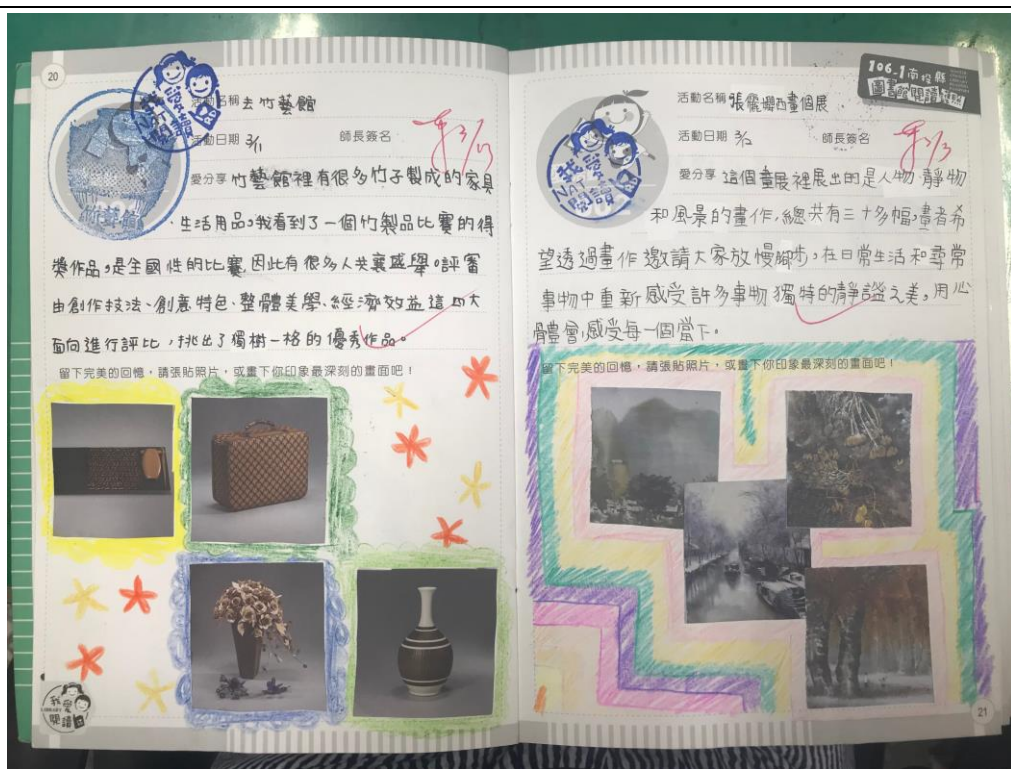 20
活動名稱 去竹藝館
活動日期 3/11 師長簽名
愛分享 竹藝館裡有很多竹子製成的家具
、生活用品,我看到了一個竹製品比賽的得
獎作品,是全國性的比賽,因此有很多人共襄盛舉。評審
由創作技法、創意特色、整體美學、經濟效益這四大
面向進行評比,挑出了獨樹一格的優秀作品。
留下完美的回憶,請張貼照片,或畫下你印象最深刻的畫面吧!
竹藝館
我愛
閱讀
106_1南投縣
圖書館閱讀
活動名稱 張儷嬋西畫個展
活動日期 3/2 師長簽名
愛分享 這個畫展裡展出的是人物、靜物
和風景的畫作,總共有三十多幅,畫者希
望透過畫作邀請大家放慢腳步,在日常生活和尋常
事物中重新感受許多事物獨特的靜謐之美,用心
體會,感受每一個當下。
留下完美的回憶,請張貼照片,或畫下你印象最深刻的畫面吧!
我愛
NAT
閱讀
21